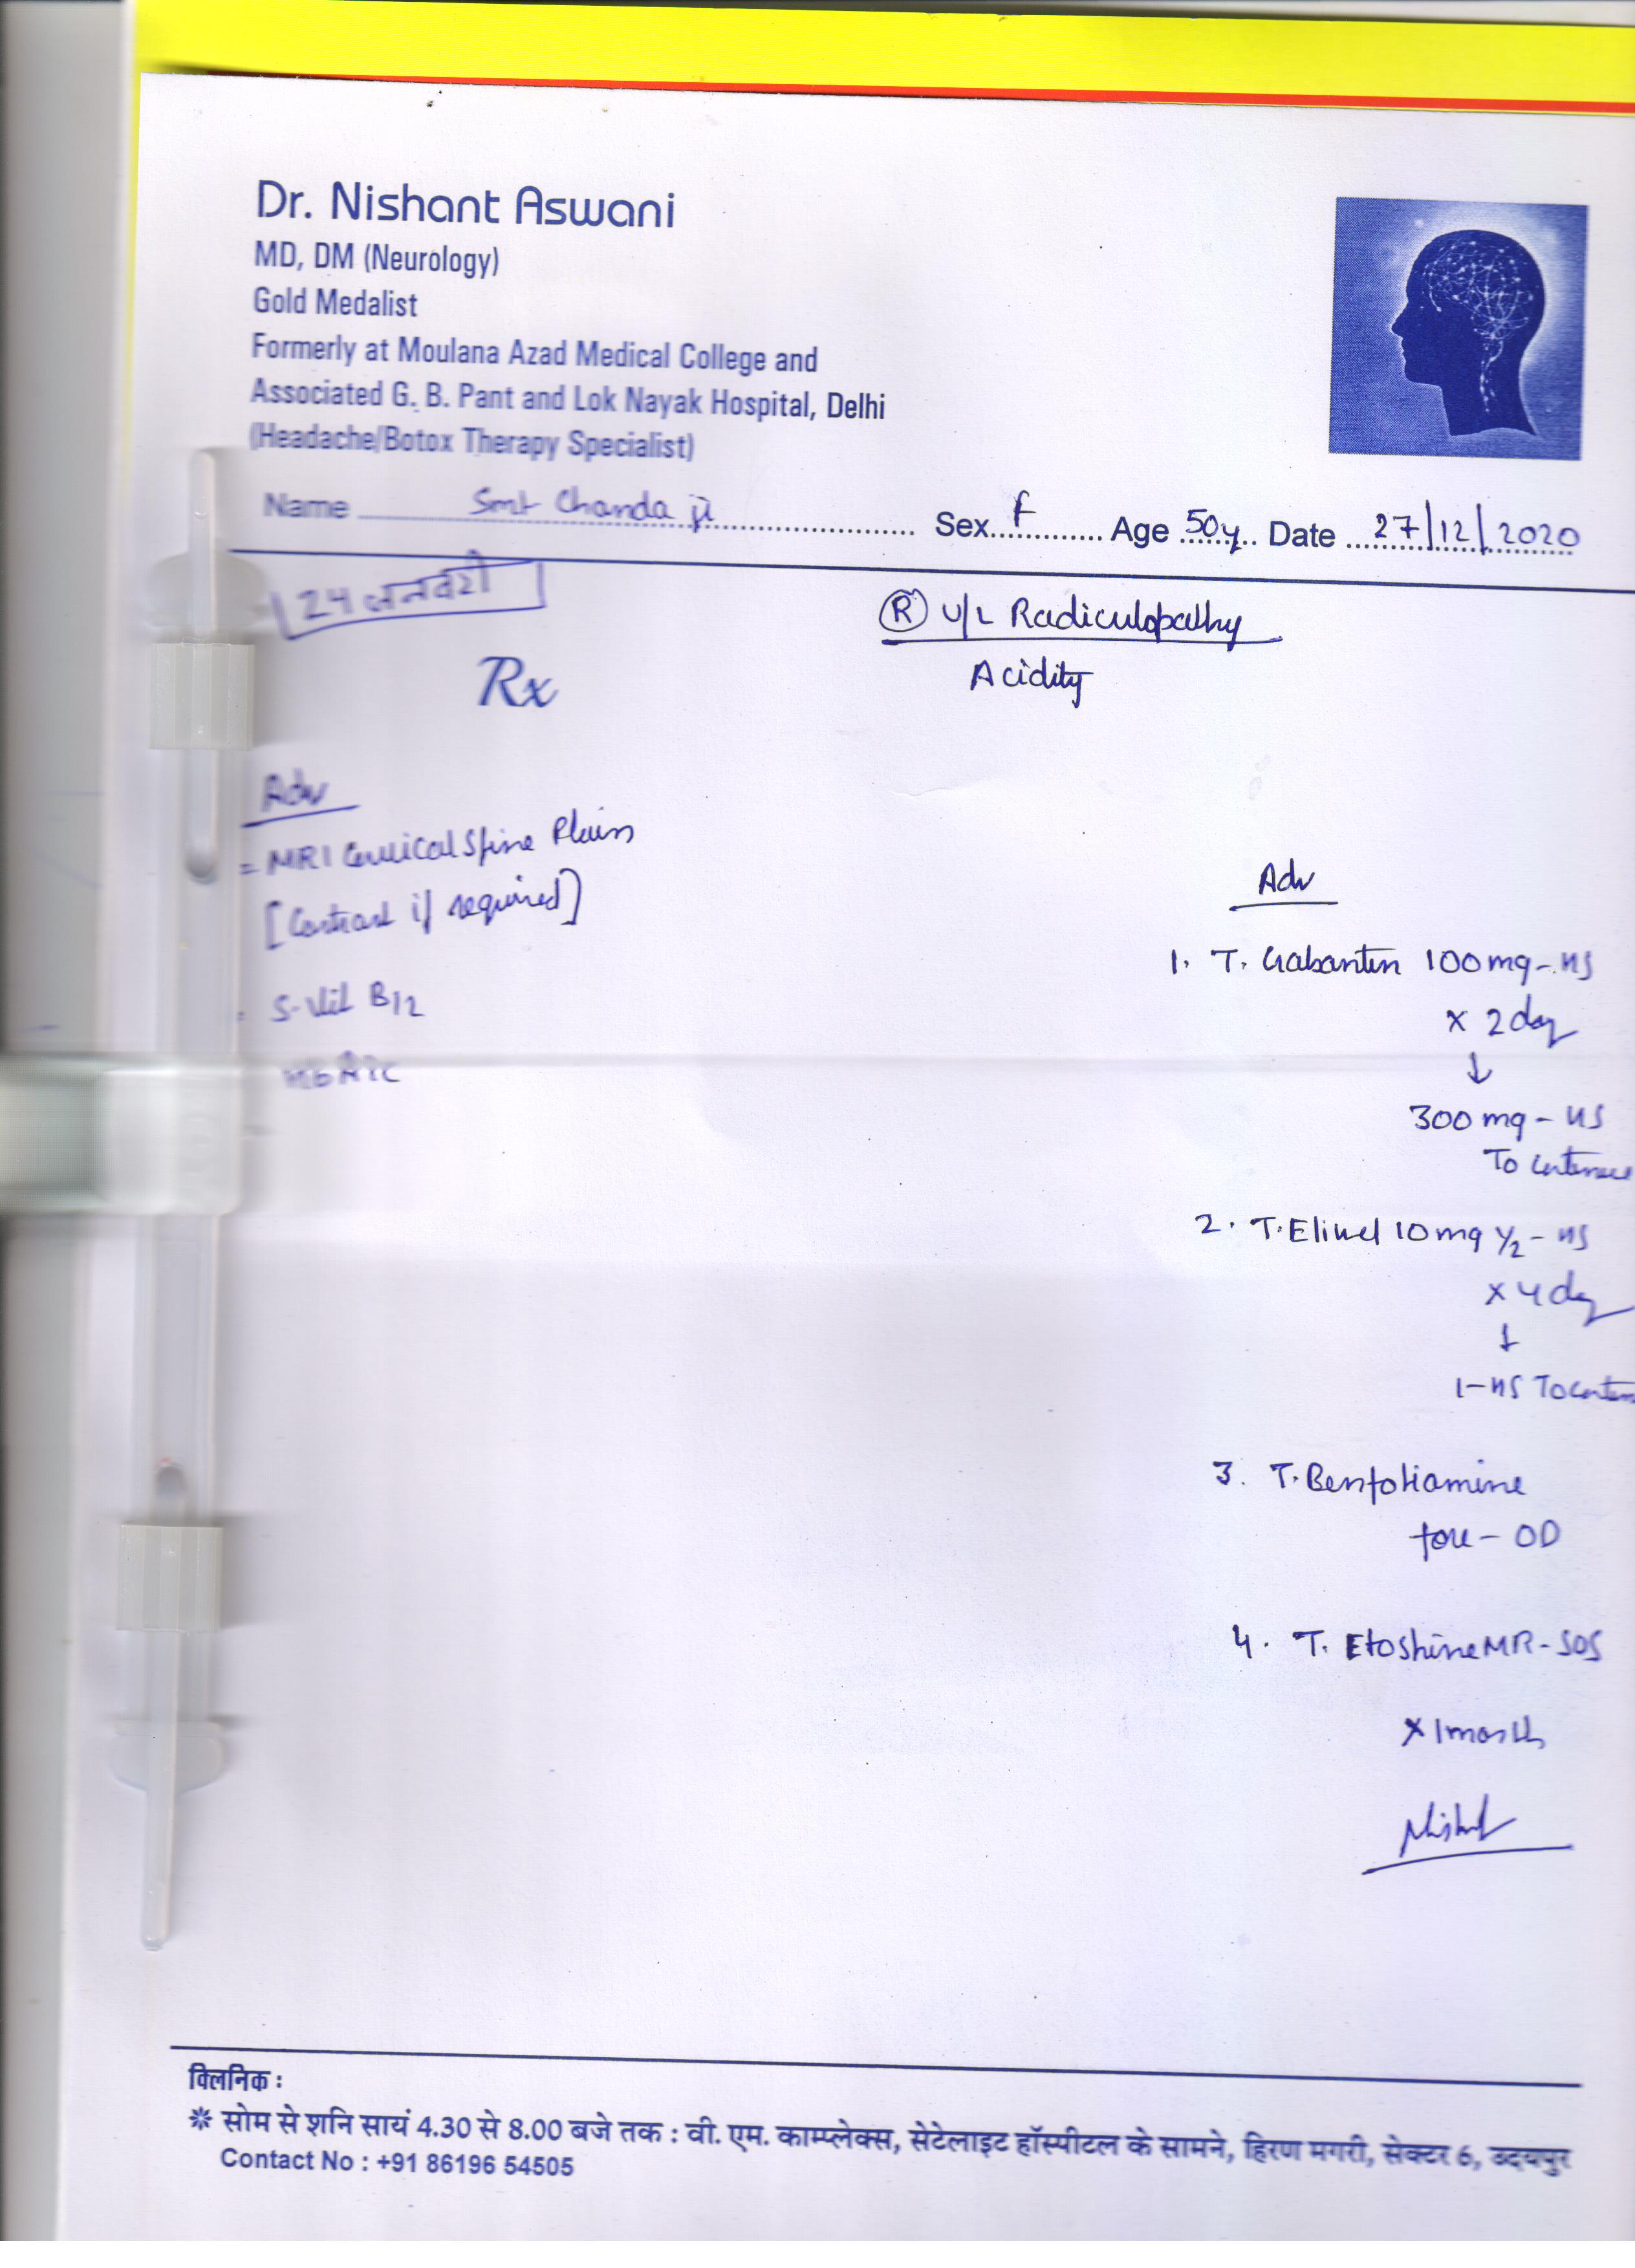 Dr. Nishant Aswani
MD, DM (Neurology)
Gold Medalist
Formerly at Moulana Azad Medical College and
Associated G. B. Pant and Lok Nayak Hospital, Delhi
(Headache/Botox Therapy Specialist)
Name Smt Chanda ji Sex F Age 50y Date 27/12/2020
24 जनवरी
(R) U/L Radiculopathy
Acidity
Rx
Adv
- MRI Cervical Spine Plain
[Contrast if required]
- S. Vit B12
HbA1c
Adv
1. T. Gabantin 100mg - HS
x 2 day
↓
300 mg - HS
To continue
2. T. Eliwel 10mg 1/2 - HS
x 4 day
↓
1 - HS To contin
3. T. Benfotiamine
forte - OD
4. T. Etoshine MR - SOS
x 1 month
क्लिनिक :
* सोम से शनि सायं 4.30 से 8.00 बजे तक : वी. एम. काम्प्लेक्स, सेटेलाइट हॉस्पीटल के सामने, हिरण मगरी, सेक्टर 6, उदयपुर
Contact No : +91 86196 54505